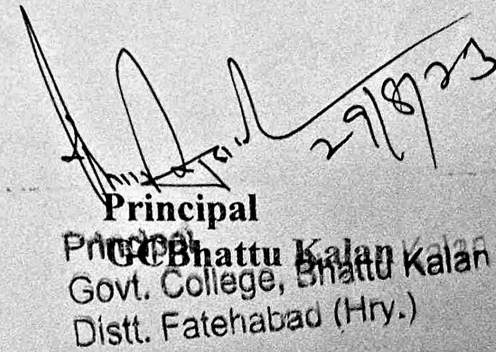 29/8/23
Principal
GC Bhattu Kalan
Principal
Govt. College, Bhattu Kalan
Distt. Fatehabad (Hry.)